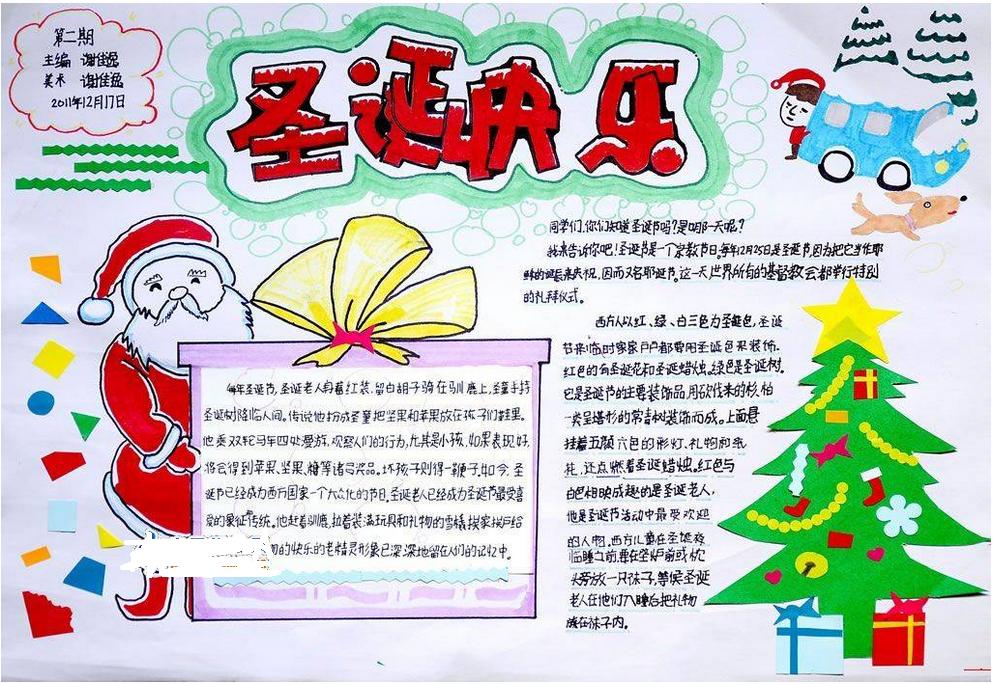 第二期
主编 谢佳盈
美术 谢佳盈
2011年12月17日
圣诞快乐
同学们，你们知道圣诞节吗？是哪一天呢？
我来告诉你吧！圣诞节是一个宗教节日，每年12月25日是圣诞节，因为把它当作耶
稣的诞辰来庆祝，因而又名耶诞节。这一天世界所有的基督教会都举行特别
的礼拜仪式。
西方人以红、绿、白三色为圣诞色，圣诞
节来临时家家户户都要用圣诞色来装饰。
红色的有圣诞花和圣诞蜡烛。绿色是圣诞树。
它是圣诞节的主要装饰品，用砍伐来的杉、柏
一类呈塔形的常青树装饰而成。上面悬
挂着五颜六色的彩灯、礼物和纸
花，还点燃着圣诞蜡烛。红色与
白色相映成趣的是圣诞老人，
他是圣诞节活动中最受欢迎
的人物。西方儿童在圣诞夜
临睡之前，要在壁炉前或枕
头旁放一只袜子，等候圣诞
老人在他们入睡后把礼物
放在袜子内。
每年圣诞节，圣诞老人身着红装，留白胡子骑在驯鹿上，圣童手持
圣诞树降临人间。传说他扮成圣童把坚果和苹果放在孩子们鞋里。
他乘双轮马车四处漫游，观察人们的行为，尤其是小孩，如果表现好，
将会得到苹果、坚果、糖等诸多奖品。坏孩子则得一鞭子。如今，圣
诞节已经成为西方国家一个大众化的节日，圣诞老人已经成为圣诞节最受喜
爱的象征传统。他赶着驯鹿，拉着装满玩具和礼物的雪橇，挨家挨户给
物的快乐的老精灵形象已深深地留在人们的记忆中。